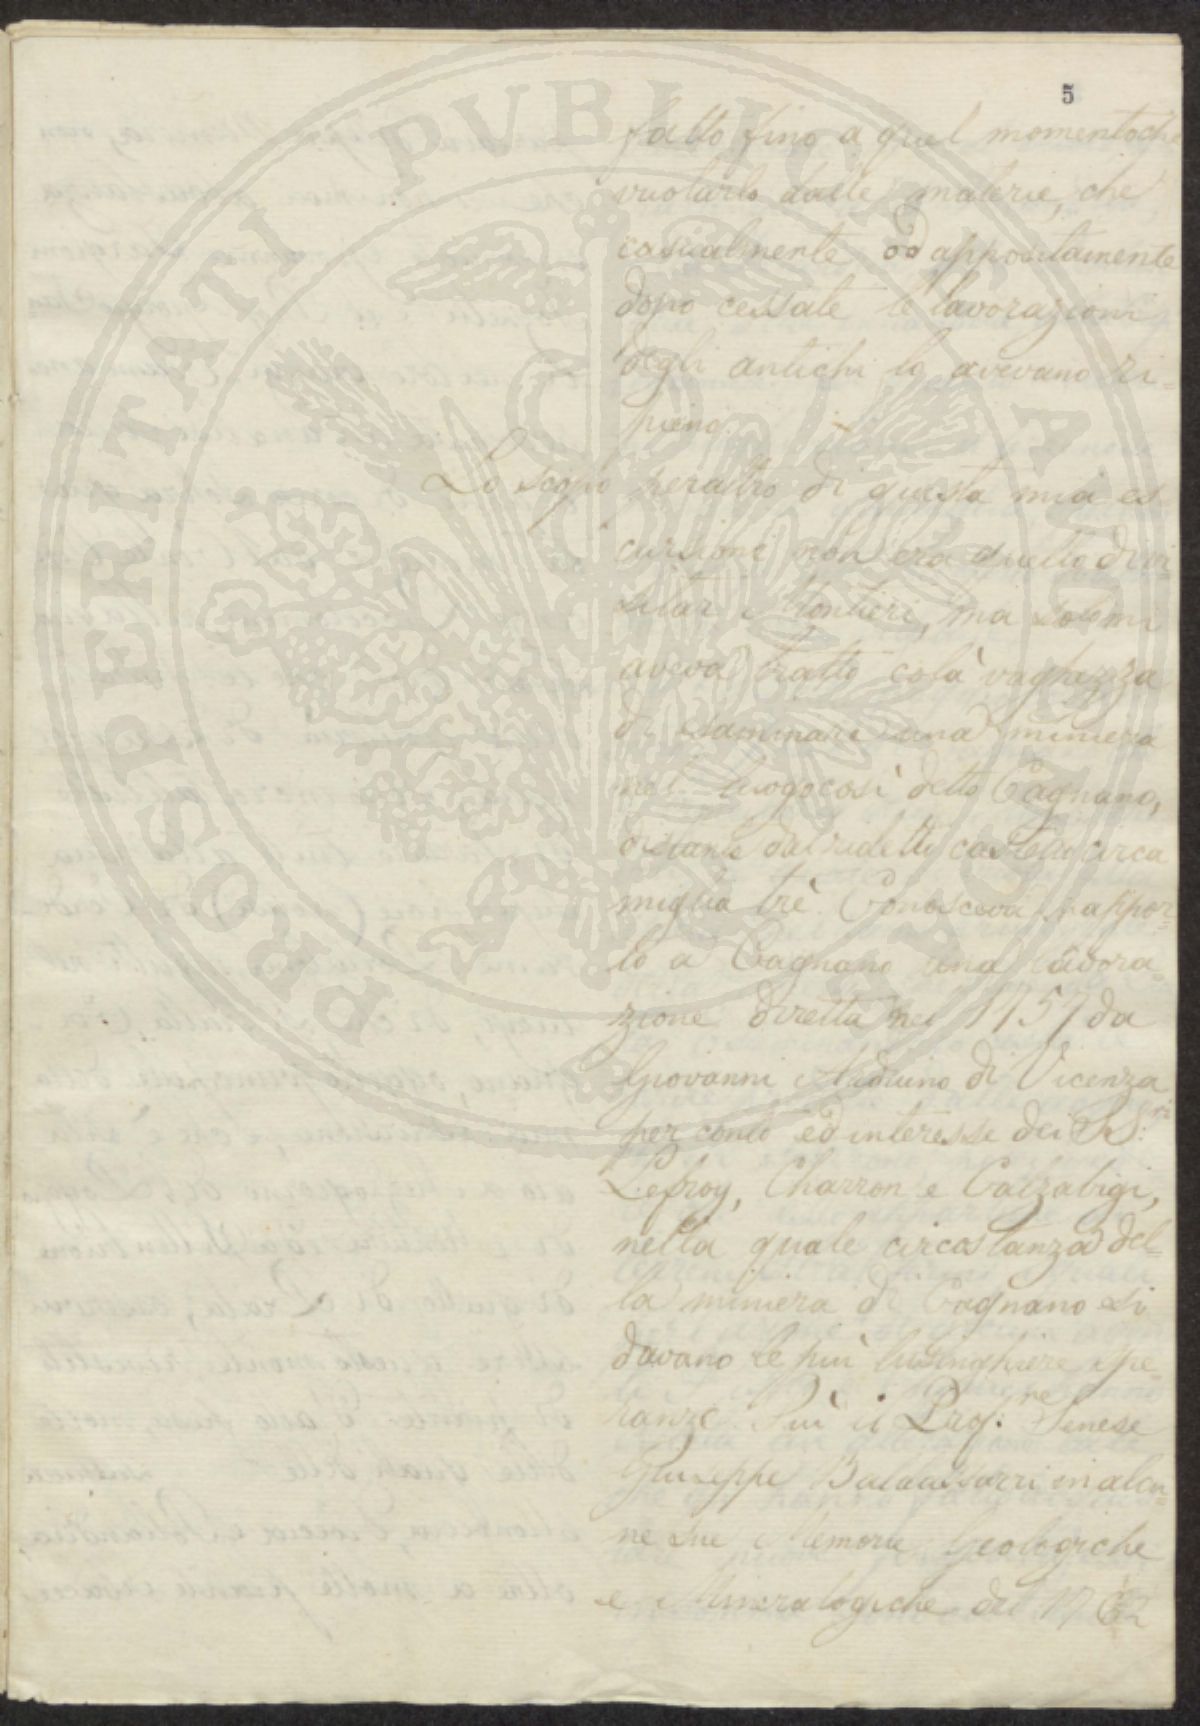 5
fatto fino a quel momento che
vuotarlo dalle materie, che
casualmente od appositamente
dopo cessate le lavorazioni
degli antichi lo avevano ri=
pieno.
Lo scopo peraltro di questa mia es
cursione non era quello di vi=
sitare Montieri, ma solo mi
aveva tratto colà vaghezza
di esaminare una miniera
nel luogo così detto Cagnano,
distante dal ridetto castello circa
miglia trè. Conosceva rappor=
to a Cagnano una lavora=
zione diretta nel 1757 da
Giovanni Arduino di Vicenza
per conto ed interesse dei SS:ri
Lefroy, Charron e Calzabigi,
nella quale circostanza del=
la miniera di Cagnano si
davano le più lusinghiere spe=
ranze. Più il Prof:re Senese
Giuseppe Baldassarri in alcu=
ne sue Memorie Geologiche
e Mineralogiche del 1762
PROSPERITATI PVBLICAE AVGENDAE